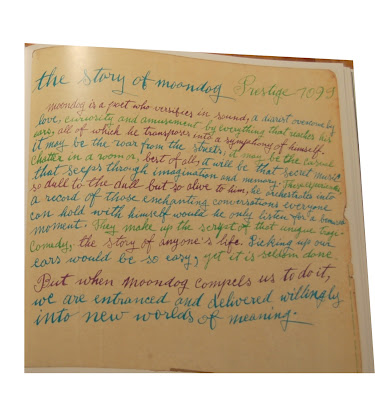 the story of moondog Prestige 1099
moondog is a poet who versifies in sound, a diarist overcome by
love, curiosity and amusement by everything that reaches his
ears, all of which he transposes into a symphony of himself.
it may be the roar from the streets, it may be the casual
chatter in a room or, best of all, it will be that secret music
that seeps through imagination and memory. These sounds
so dull to the dull but so alive to him, he orchestrates into
a record of those enchanting conversations everyone
can hold with himself would he only listen for a
moment. They make up the script of that unique tragi-
comedy, the story of anyone's life. Pricking up our
ears would be so easy, yet it is seldom done.
But when moondog compels us to do it,
we are entranced and delivered willingly
into new worlds of meaning.